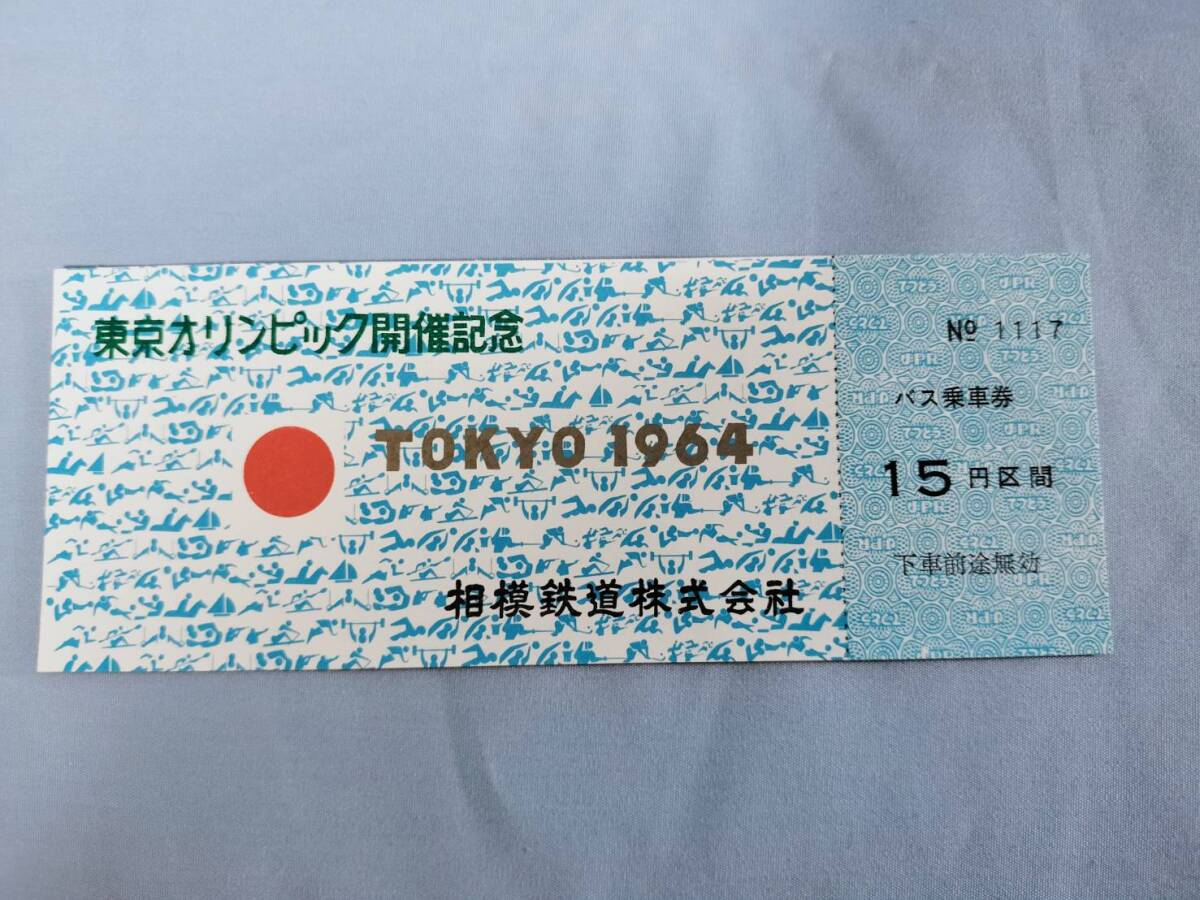 東京オリンピック開催記念
TOKYO 1964
相模鉄道株式会社
てつどう JPR
№ 1117
バス乗車券
15円区間
下車前途無効